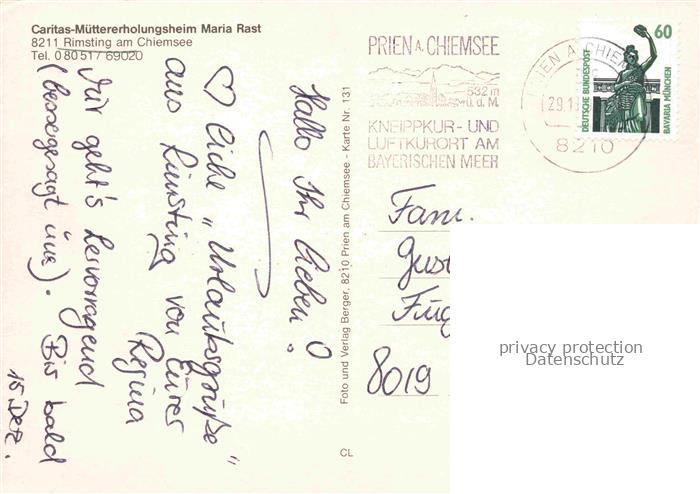 Caritas-Müttererholungsheim Maria Rast
8211 Rimsting am Chiemsee
Tel. 0 80 51 / 69020
Hallo Ihr Lieben!
♡ liche "Urlaubsgrüße"
aus Rimsting von Eurer
Regina
Mir geht's hervorragend
(bessergesagt uns). Bis bald
15. Dez.
Foto und Verlag Berger, 8210 Prien am Chiemsee - Karte Nr. 131
CL
PRIEN A. CHIEMSEE
532 m
ü. d. M.
KNEIPPKUR- UND
LUFTKURORT AM
BAYERISCHEN MEER
PRIEN A. CHIEM
29.1
8210
60
DEUTSCHE BUNDESPOST
BAVARIA MÜNCHEN
Fam.
Gus
8019
privacy protection
Datenschutz